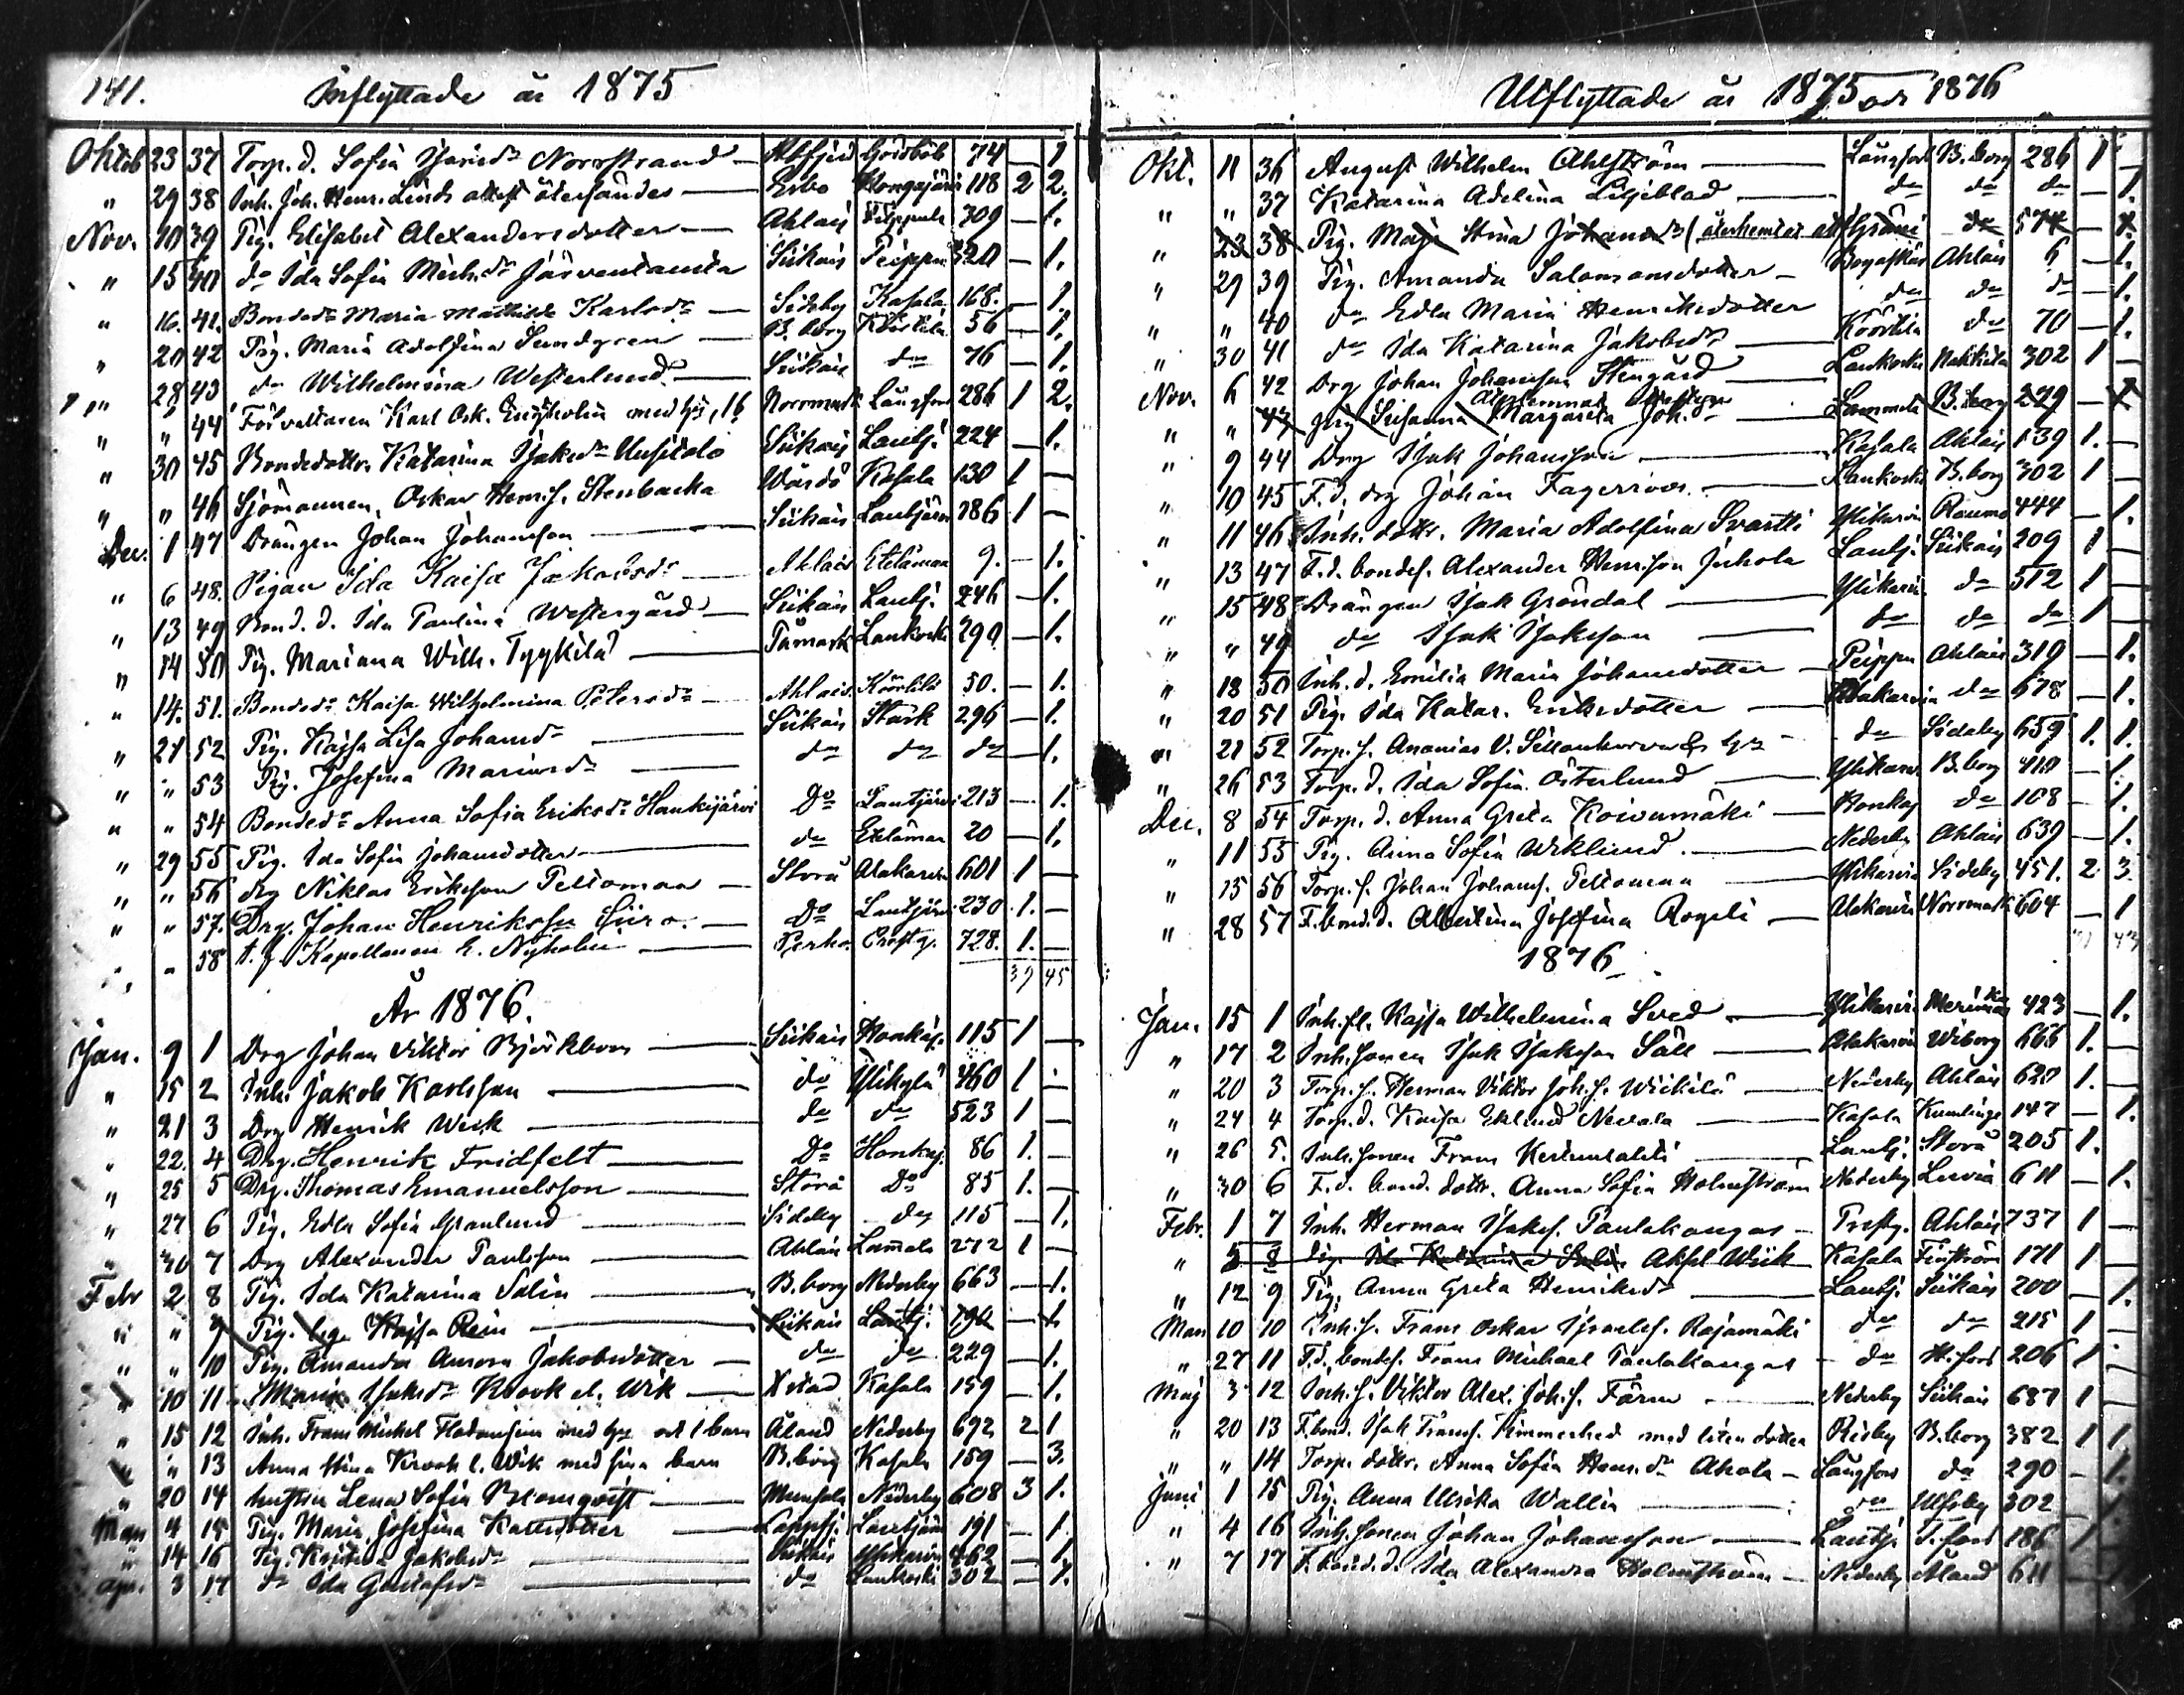 141. Inflyttade år 1875
Oktob 23 37 Torp. d. Sofia Isaksdr Norrstrand — 74 — 1
" 29 38 Inh. Joh. Henr. Lind attest återsändes — Erbo Hongajärvi 118 2 2.
Nov. 10 39 Pig. Elisabet Alexandersdotter — Ahlais Filppula 309 — 1.
" 15 40 do Ida Sofia Mich.dr Järventausta Siikais Peippu 320 — 1.
" 16. 41. Bondedr Maria Mathilda Karlsdr — Sideby Kasala 168. — 1.
" 20 42 Pig. Maria Adolfina Sundgren — B.borg Köörtilä 56 — 1.
" 28 43 do Wilhelmina Westerlund — Siikais do 76 — 1.
" " 44 Förvaltaren Karl Osk. Engholm med h., 1 b. Norrmark Långfors 286 1 2.
" 30 45 Bondedottr. Katarina Isaksdr Uusitalo Siikais Lautj. 224 — 1.
" " 46 Sjömannen, Oskar Henrs. Stenbacka Wårdö Kasala 130 1 —
Dec. 1 47 Drängen Johan Johansson — Siikais Lautjärvi 186 1 —
" 6 48. Pigan Ida Kaisa Jakobsdr — Ahlais Etelämaa 9. — 1.
" 13 49 Bond. d. Ida Paulina Westergård — Siikais Lautj. 246 — 1.
" 14 50 Pig. Mariana Wilh. Tyykilä — Påmark Lankoski 290 — 1.
" 14. 51. Bondedr Kaisa Wilhelmina Petersdr — Ahlais Köörtilä 50. — 1.
" 21 52 Pig. Kajsa Lisa Johansdr — Siikais Stark 296 — 1.
" " 53 Pig. Josefina Mariasdr — do do do — 1.
" " 54 Bondedr Anna Sofia Eriksdr Hankijärvi Do Lautjärvi 213 — 1.
" 29 55 Pig. Ida Sofia Johansdotter — do Etelämaa 20 — 1.
" " 56 drg Niklas Eriksson Peltomaa — Storå Alakarvi 601 1 —
" " 57. Drg. Johan Henriksson Siiro. — Do Lautjärvi 230 1. —
" " 58 t. f. Kapellanen E. Nyholm — Perho. Prestg. 728. 1. —
39 45
År 1876.
Jan. 9 1 Drg Johan Viktor Björkbom — Siikais Honkaj. 115 1 —
" 15 2 Inh. Jakob Karlsson — do Ylikylä 460 1 —
" 21 3 Drg Henrik Wesk — do do 523 1 —
" 22. 4 Drg. Henrik Fridfelt — Do Honkaj. 86 1. —
" 25 5 Drg. Thomas Emanuelsson — Storå Do 85 1. —
" 27 6 Pig. Edla Sofia Granlund — Sideby do 115 — 1.
" 30 7 Drg Alexander Paulsson — Ahlais Lamala 272 1 —
Febr 2 8 Pig. Ida Katarina Salin — B.borg Nederby 663 — 1.
" " 9 Pig. Kajsa Rein — Siikais Lautj. 190 — 1
" " 10 Pig. Amanda Aurora Jakobsdotter — do do 229 — 1.
" 10 11 Maria Isaksdr Krook el. Wik — Xstad Kasala 159 — 1.
" 15 12 Inh. Frans Michel med h. och 1 barn Åland Nederby 692 2 1
" " 13 Anna Stina Krook l. Wik med sina barn B.borg Kasala 159 — 3.
" 20 14 Lena Sofia Blomqvist — Munsala Nederby 608 3 1.
Mars 4 15 Pig. Maria Josefina — Lappfj. Lautjärvi 191 — 1.
" 14 16 Pig. Kristina Jakobsdr — Siikais Ylikarvi 462 — 1.
Apr. 3 17 do Ida Gustafsdr — do Lankoski 302 — 1.
Utflyttade år 1875 och 1876
Okt. 11 36 August Wilhelm Ahlström — Långfors B.borg 286 1 —
" " 37 Katarina Adelina Liljeblad — do do do — 1.
" 23 38 Pig. Maja Stina Johansdr (återhemtat att) do 574 — 1.
" 29 39 Pig. Amanda Salomonsdotter — Ahlais 6 — 1.
" " 40 do Edla Maria Henriksdotter do do do — 1.
" 30 41 do Ida Katarina Jakobsdr — Köörtilä do 70 — 1.
Nov. 6 42 Drg Johan Johansson Stengård — Lankoski Nakkila 302 1 —
" " 43 Susanna Margareta Joh.dr — Lammela B.borg 229 — 1
" 9 44 Drg Isak Johansson — Kasala Ahlais 139 1. —
" 10 45 F. d. drg Johan Fagerroos. — Lankoski B.borg 302 1 —
" 11 46 Inh. dottr. Maria Adolfina Svartti Ylikarvi Raumo 444 — 1.
" 13 47 F. d. bondes. Alexander Henrsson Juhola Lautj. Siikais 209 1 —
" 15 48 Drängen Isak Gröndal — Ylikarvi do 512 1 —
" " 49 do Isak Isaksson — do do do 1 —
" 18 50 Inh. d. Emilia Maria Johansdotter — Peippu Ahlais 319 — 1.
" 20 51 Pig. Ida Katar. Eriksdotter — Alakarvi do 578 — 1.
" 21 52 Torp. s. Ananias V. & h. do Sideby 659 1. 1.
" 26 53 Torp. d. Ida Sofia Österlund — Ylikarvi B.borg 410 — 1.
Dec. 8 54 Torp. d. Anna Greta Koivumäki — Honkaj do 108 — 1.
" 11 55 Pig. Anna Sofia Wiklund. — Nederby Ahlais 639 — 1.
" 15 56 Torp. s. Johan Johanss. Peltomaa — Ylikarvi Sideby 451. 2 3.
" 28 57 F. bond. d. Albertina Josefina Rogeli — Alakarvi Norrmark 604 — 1
1876
Jan. 15 1 Inh. fl. Kajsa Wilhelmina Sved — Ylikarvi Merimasku 423 — 1.
" 17 2 Inh. sonen Isak Isaksson Säll — Alakarvi Wiborg 666 1. —
" 20 3 Torp. s. Herman Viktor Joh. s. Wickilä — Nederby Ahlais 620 1. —
" 24 4 Torp. d. Kaisa Eklund Nevala — Kasala Kumlinge 147 — 1.
" 26 5. Inh. sonen Frans — Lautj. Storå 205 1.
" 30 6 F. d. bond. dottr. Anna Sofia Holmström Nederby Luvia 611 — 1.
Febr. 1 7 Inh. Herman Isaks. Pantakangas — Prestg. Ahlais 737 1 —
" 5 8 Pig. Ida Katarina Salin Aksel Wiik Kasala Finström 171 1 —
" 12 9 Pig. Anna Greta Henriksdr — Lautj. Siikais 200 — 1.
Mars 10 10 Inh. s. Frans Oskar Israels. Rajamäki do do 215 1 —
" 27 11 F. d. bondes. Frans Michael Pantakangas — do H.fors 206 1 —
Maj 3 12 Inh. s. Viktor Alex. Joh. s. Färm — Nederby Siikais 687 1 —
" 20 13 F. bond. Isak Franss. Rimmerhed med liten dotter Risby B.borg 382 1 1.
" " 14 Torp. dottr. Anna Sofia Henr.dr Ahola — Långfors do 290 — 1.
Juni 1 15 Pig. Anna Ulrika Wallin — do Ulfsby 302
" 4 16 Inh. sonen Johan Johansson — Lautj. T.fors 186 1
" 7 17 F. bond. d. Ida Alexandra Holmström — Nederby Åland 611